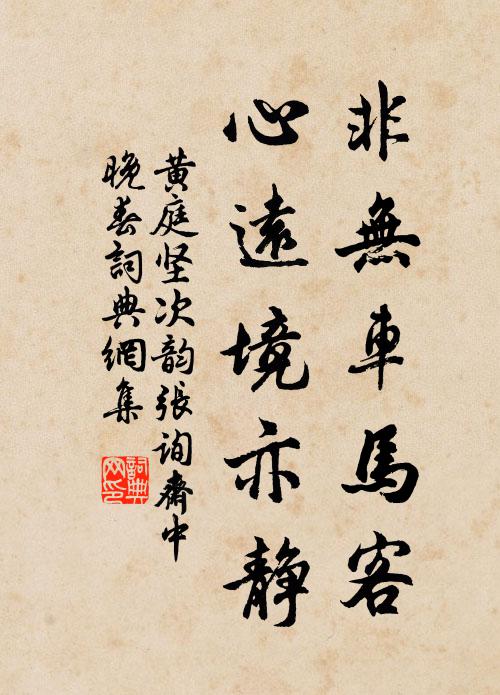 非無車馬客
心遠境亦静
黄庭坚次韵張询齋中
晚春詞典網集
詞典
网印